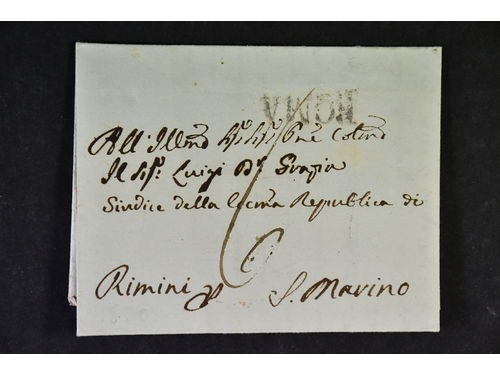 ROMA
All' Illmo Sig. Sig. Pne Colmo
Il Sig. Luigi De Grazia
Sindice della Serma Republica di
Rimini p S. Marino